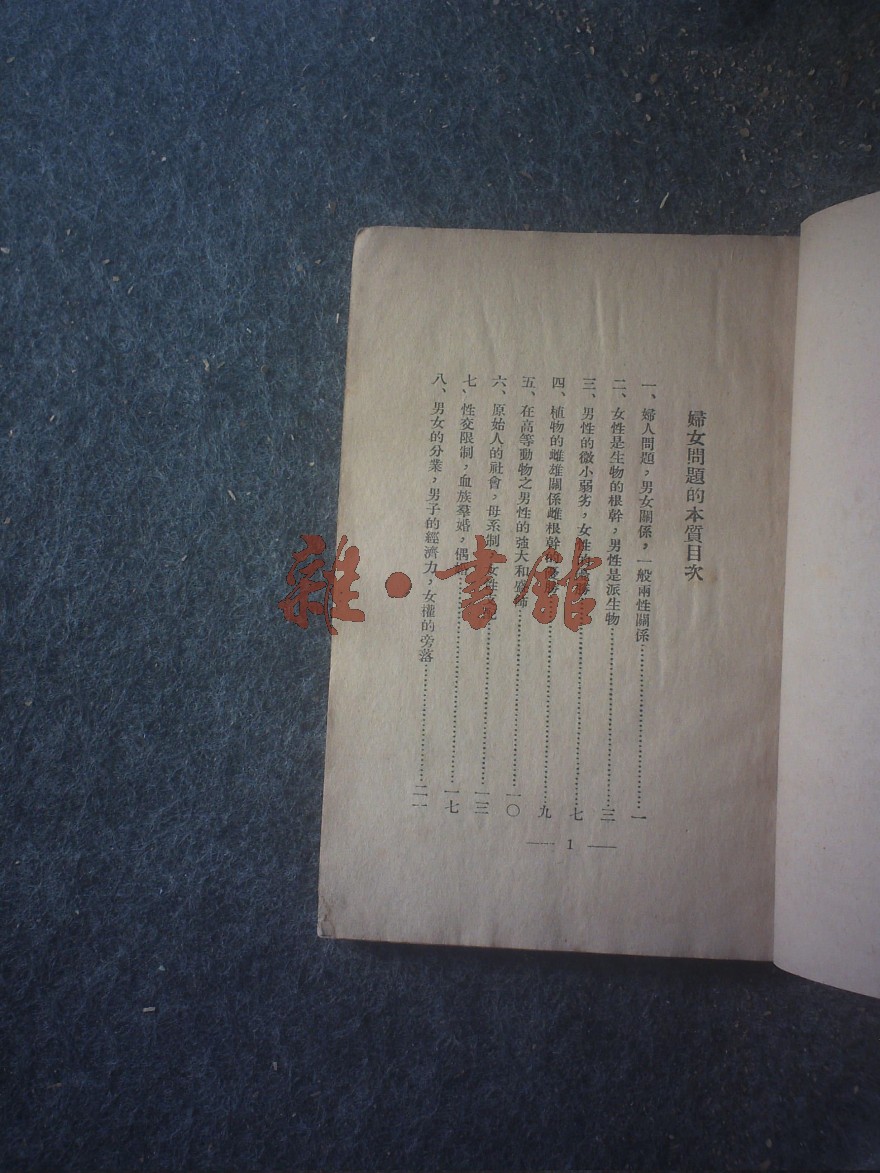 婦女問題的本質目次
一、婦人問題，男女關係，一般兩性關係……一
二、女性是生物的根幹，男性是派生物……三
三、男性的微小弱劣，女性的……七
四、植物的雌雄關係雌根幹的……九
五、在高等動物之男性的強大和……飾……一〇
六、原始人的社會，母系制，女性……一三
七、性交限制，血族羣婚，偶……一七
八、男女的分業，男子的經濟力，女權的旁落……二一
— 1 —
雜·書館